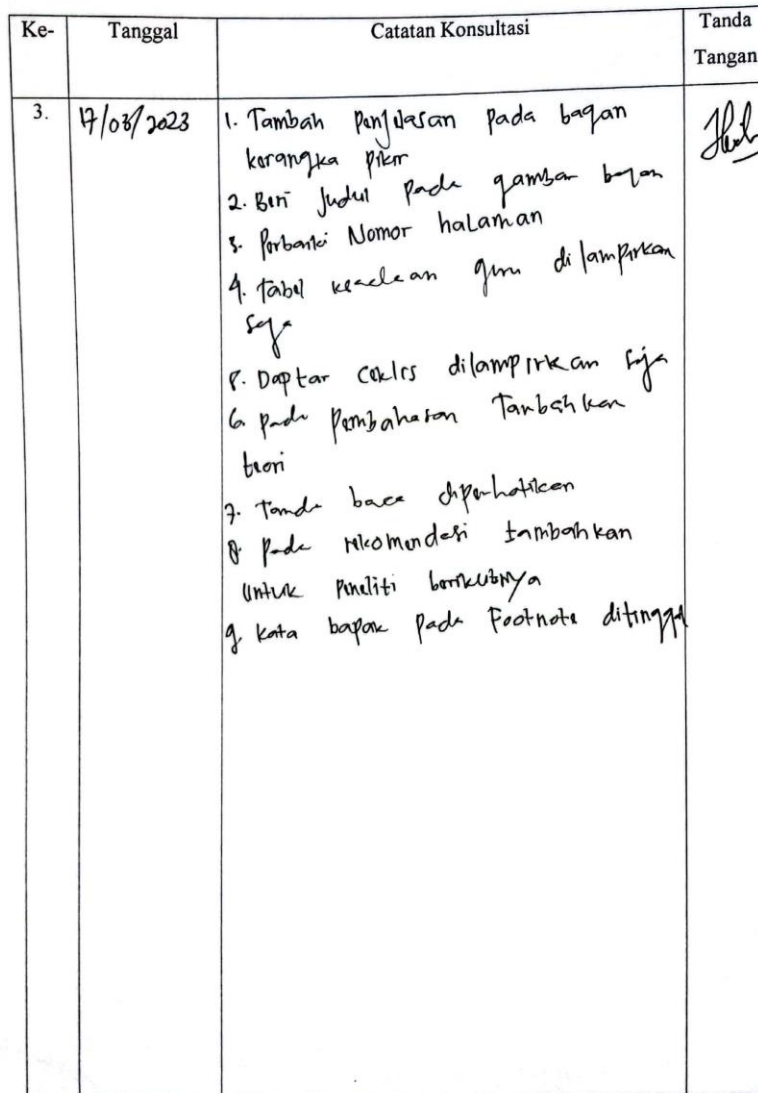 Ke-
Tanggal
Catatan Konsultasi
Tanda
Tangan
3.
17/03/2023
1. Tambah penjelasan pada bagan
kerangka pikir
2. Beri Judul pada gambar bagan
3. Perbaiki Nomor halaman
4. tabel keadaan guru di lampirkan
saja
5. Daptar ceklis dilampirkan saja
6. pada Pembahasan Tambahkan
teori
7. Tanda baca diperhatikan
8. pada rekomendasi tambahkan
untuk peneliti berikutnya
9. kata bapak pada Footnote ditinggal